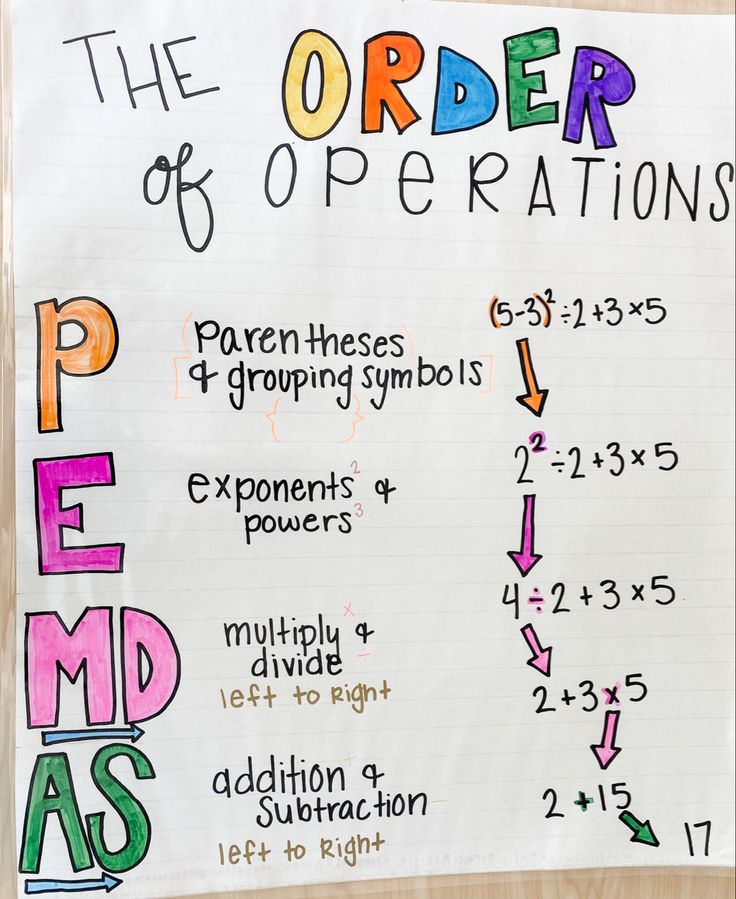 THE ORDER
of OPeRATiONS
P
parentheses
& grouping symbols
(5-3)²÷2+3×5
E
exponents² &
powers³
2²÷2+3×5
4÷2+3×5
MD
multiply × &
divide ÷
left to Right
2+3×5
AS
addition + &
Subtraction -
left to Right
2+15
17